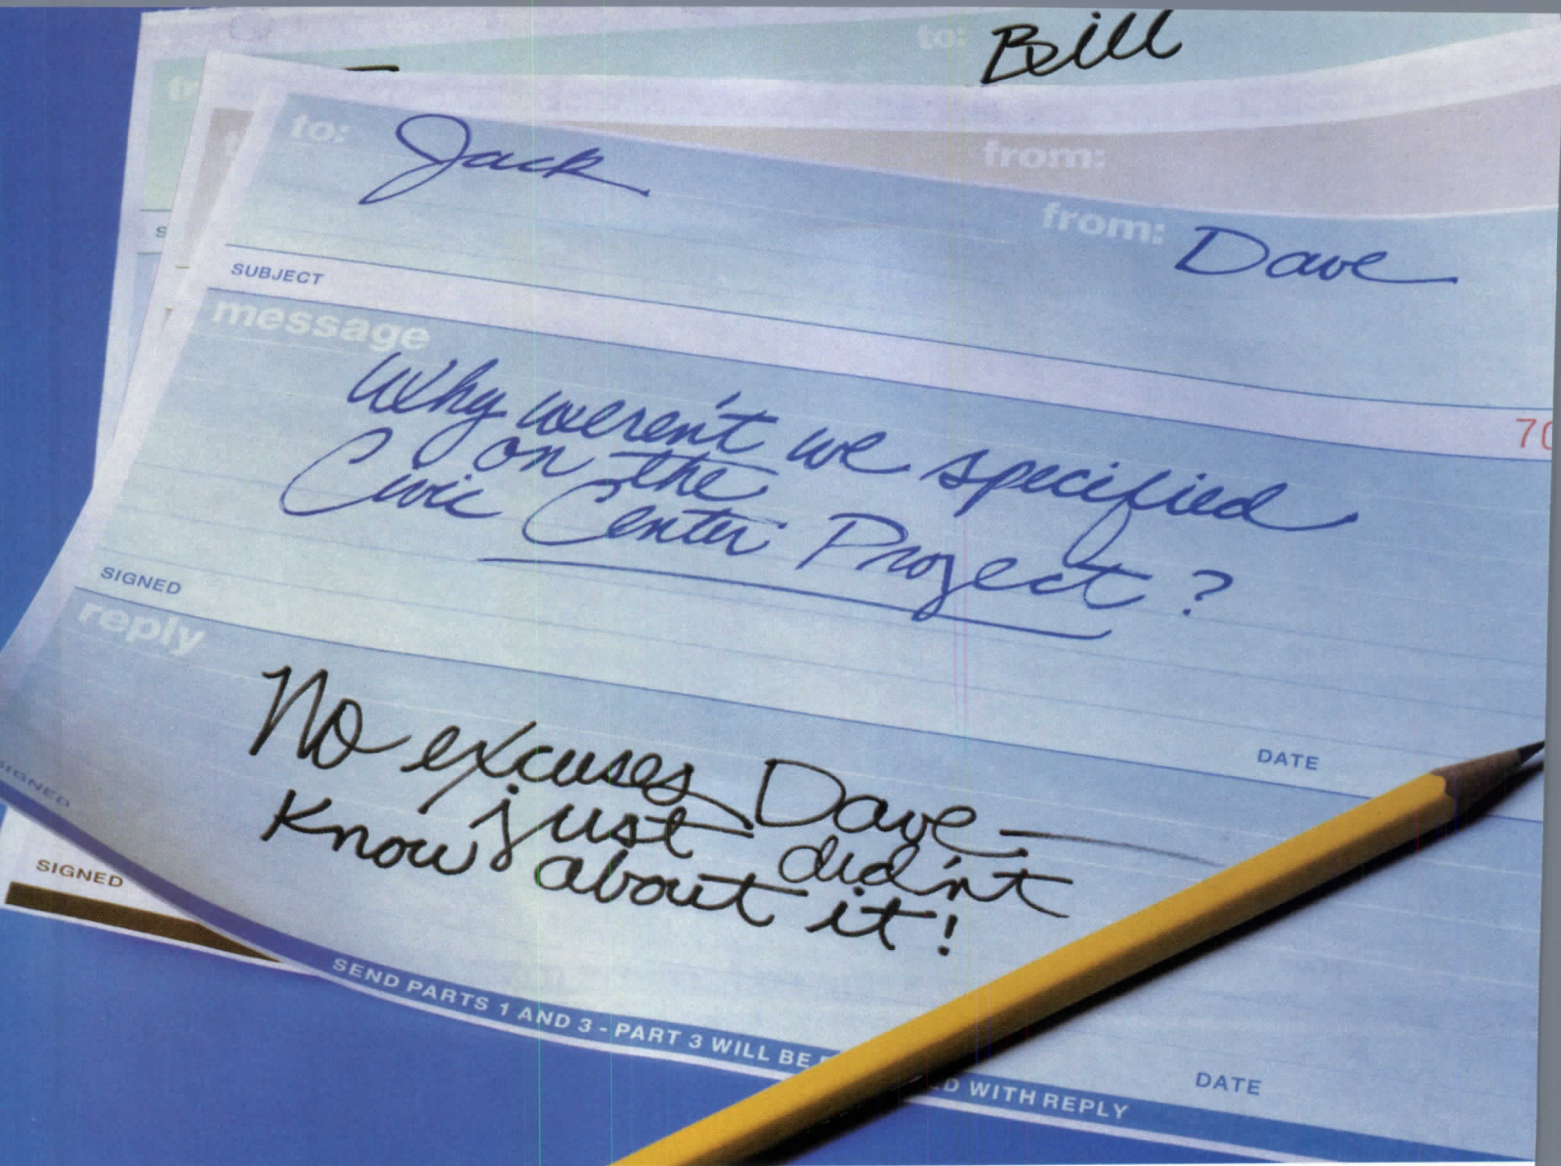 to: Bill
from:
to: Jack
from: Dave
SUBJECT
message
70
Why weren't we specified
on the
Civic Center Project?
SIGNED
DATE
reply
No excuses Dave —
just didn't
Know about it!
SIGNED
SIGNED
DATE
SEND PARTS 1 AND 3 - PART 3 WILL BE WITH REPLY